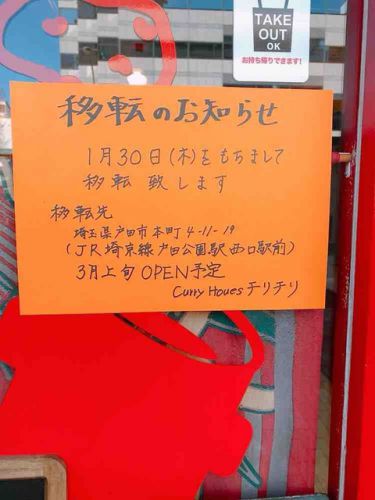 TAKE
OUT
OK
お持ち帰りできます!
移転のお知らせ
1月30日(木)をもちまして
移転致します
移転先
埼玉県戸田市本町4-11-19
(JR埼京線戸田公園駅西口駅前)
3月上旬OPEN予定
Curry Houes チリチリ